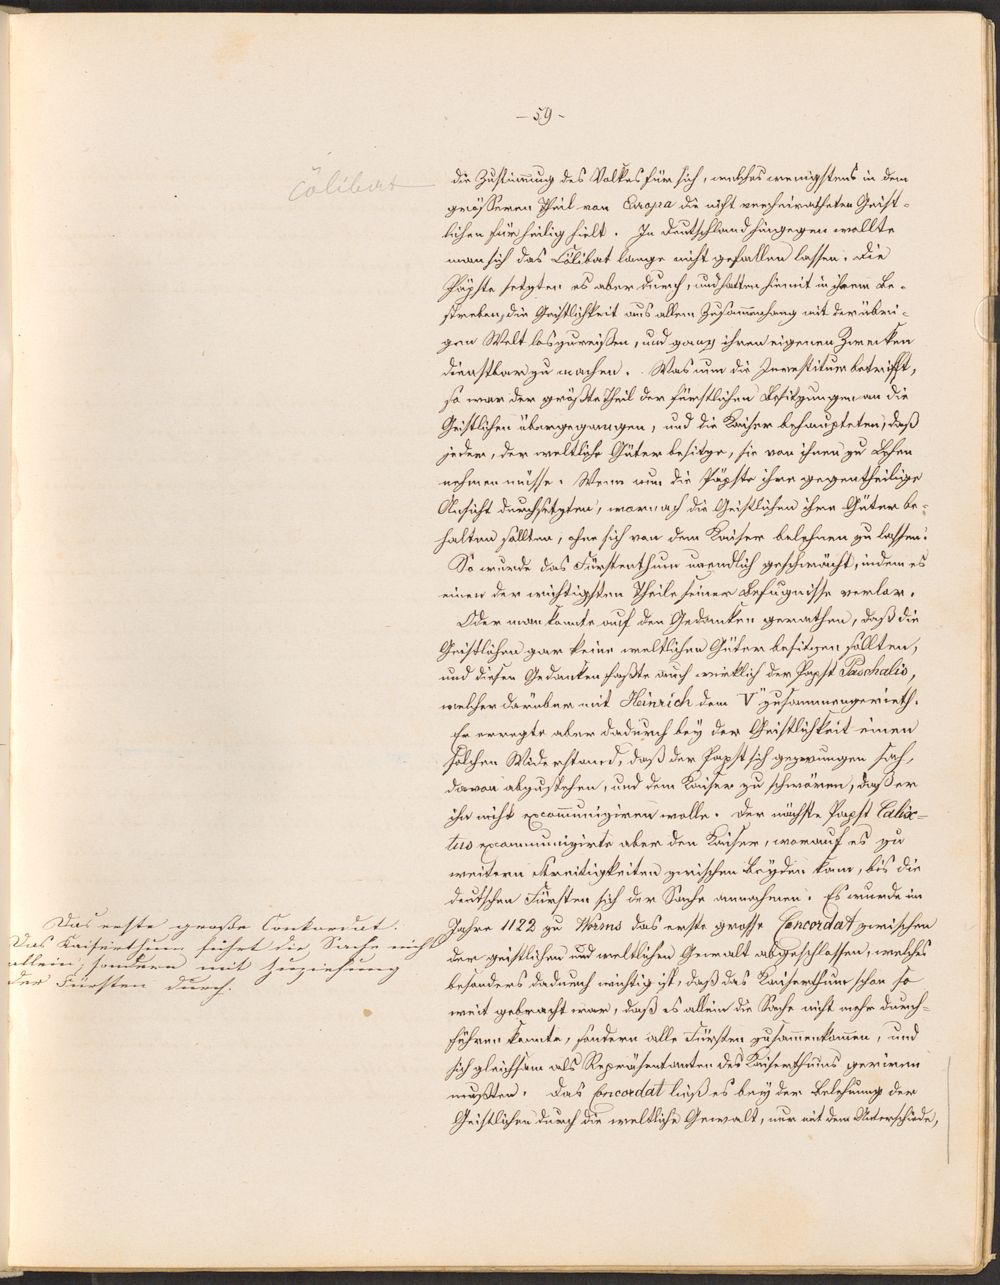 - 59 -
Cölibat
die Zustimmung des Volkes für sich, welches wenigstens in dem
grösseren Theil von Europa die nicht verheiratheten Geist-
lichen für heilig hielt. In Deutschland hingegen wollte
man sich das Cölibat lange nicht gefallen lassen. Die
Päpste setzten es aber durch, und hatten hiemit in ihrem Be-
streben, die Geistlichkeit aus allem Zusammenhang mit der übri-
gen Welt loszureißen, und ganz ihren eigenen Zwecken
dienstbar zu machen. Was nun die Investitur betrifft,
so war der größte Theil der fürstlichen Besitzungen an die
Geistlichen übergegangen, und die Kaiser behaupteten, daß
jeder, der weltliche Güter besitze, sie von ihnen zu Lehen
nehmen müsse. Wenn nun die Päpste ihre gegentheilige
Ansicht durchsetzten, wornach die Geistlichen ihre Güter be-
halten sollten, ohne sich von dem Kaiser belehnen zu lassen:
So wurde das Fürstenthum unendlich geschwächt, indem es
einen der wichtigsten Theile seiner Befugnisse verlor.
Oder man konnte auf den Gedanken gerathen, daß die
Geistlichen gar keine weltlichen Güter besitzen sollten,
und diesen Gedanken faßte auch wirklich der Papst Paschalis,
welcher darüber mit Heinrich dem V" zusammengerieth.
Er erregte aber dadurch bey der Geistlichkeit einen
solchen Widerstand, daß der Papst sich gezwungen sah,
davon abzustehen, und dem Kaiser zu schwören, daß er
ihn nicht excommuniziren wolle. Der nächste Papst Calix-
tus excommunizirte aber den Kaiser, worauf es zu
weitern Streitigkeiten zwischen Beyden kam, bis die
deutschen Fürsten sich der Sache annahmen. Es wurde im
Jahre 1122 zu Worms das erste grosse Concordat zwischen
der geistlichen und weltlichen Gewalt abgeschlossen, welches
besonders dadurch wichtig ist, daß das Kaiserthum schon so
weit gebracht war, daß es allein die Sache nicht mehr durch-
führen konnte, sondern alle Fürsten zusammenkommen, und
sich gleichsam als Repräsentanten des Kaiserthums geriren
mußten. Das Concordat ließ es bey der Belehnung der
Geistlichen durch die weltliche Gewalt, nur mit dem Unterschiede,
Das erste große Conkordat.
Das Kaiserthum führt die Sache nicht
allein, sondern mit Zuziehung
der Fürsten durch.